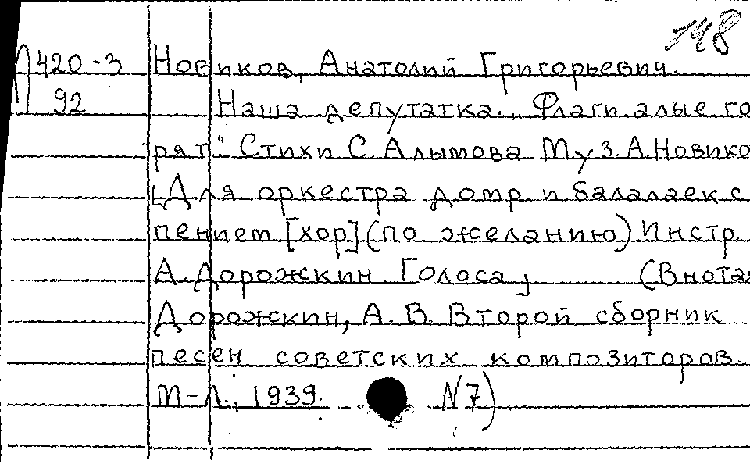 118
П420-3 Новиков, Анатолий Григорьевич.
92 Наша депутатка. „Флаги алые го
рят" Стихи С. Алымова Муз. А. Новико
[Для оркестра домр и балалаек с
пением [хор] (по желанию) Инстр.
А. Дорожкин Голоса] (В нотах
Дорожкин, А. В. Второй сборник
песен советских композиторов.
М-Л., 1939. N7)